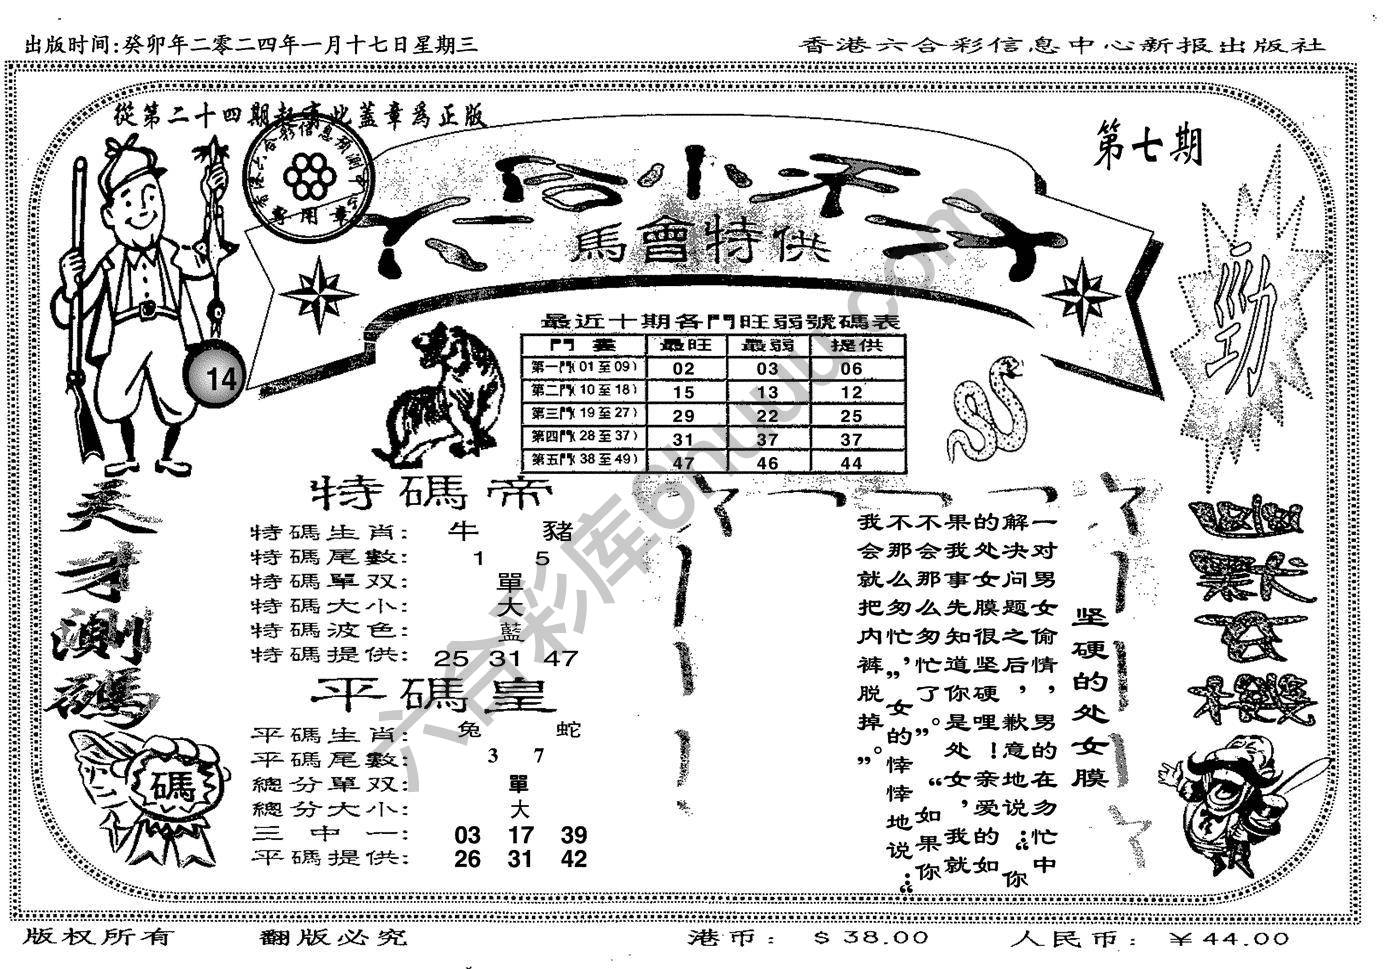 出版时间:癸卯年二零二四年一月十七日星期三
香港六合彩信息中心新报出版社
從第二十四期起有此蓋章爲正版
第七期
六合小天才
馬會特供
香港六合彩信息预测中心
專用章
勁
14
最近十期各門旺弱號碼表
門 最旺 最弱 提供
第一門(01至09) 02 03 06
第二門(10至18) 15 13 12
第三門(19至27) 29 22 25
第四門(28至37) 31 37 37
第五門(38至49) 47 46 44
天才測碼
碼
特碼帝
特碼生肖: 牛 豬
特碼尾數: 1 5
特碼單双: 單
特碼大小: 大
特碼波色: 藍
特碼提供: 25 31 47
平碼皇
平碼生肖: 兔 蛇
平碼尾數: 3 7
總分單双: 單
總分大小: 大
三中一: 03 17 39
平碼提供: 26 31 42
坚硬的处女膜
一对男女偷情，男的在勿忙中
解决问题之后，歉意地说：“你
的处女膜很坚硬哩！亲爱的，如
果我事先知道你是处女，我就
不会那么匆忙了。”“如果你
不那么匆忙，”女的悻悻地说：“
我会就把内裤脱掉。”
六合彩库6huku.com
版权所有
翻版必究
港币: $38.00
人民币: ¥44.00